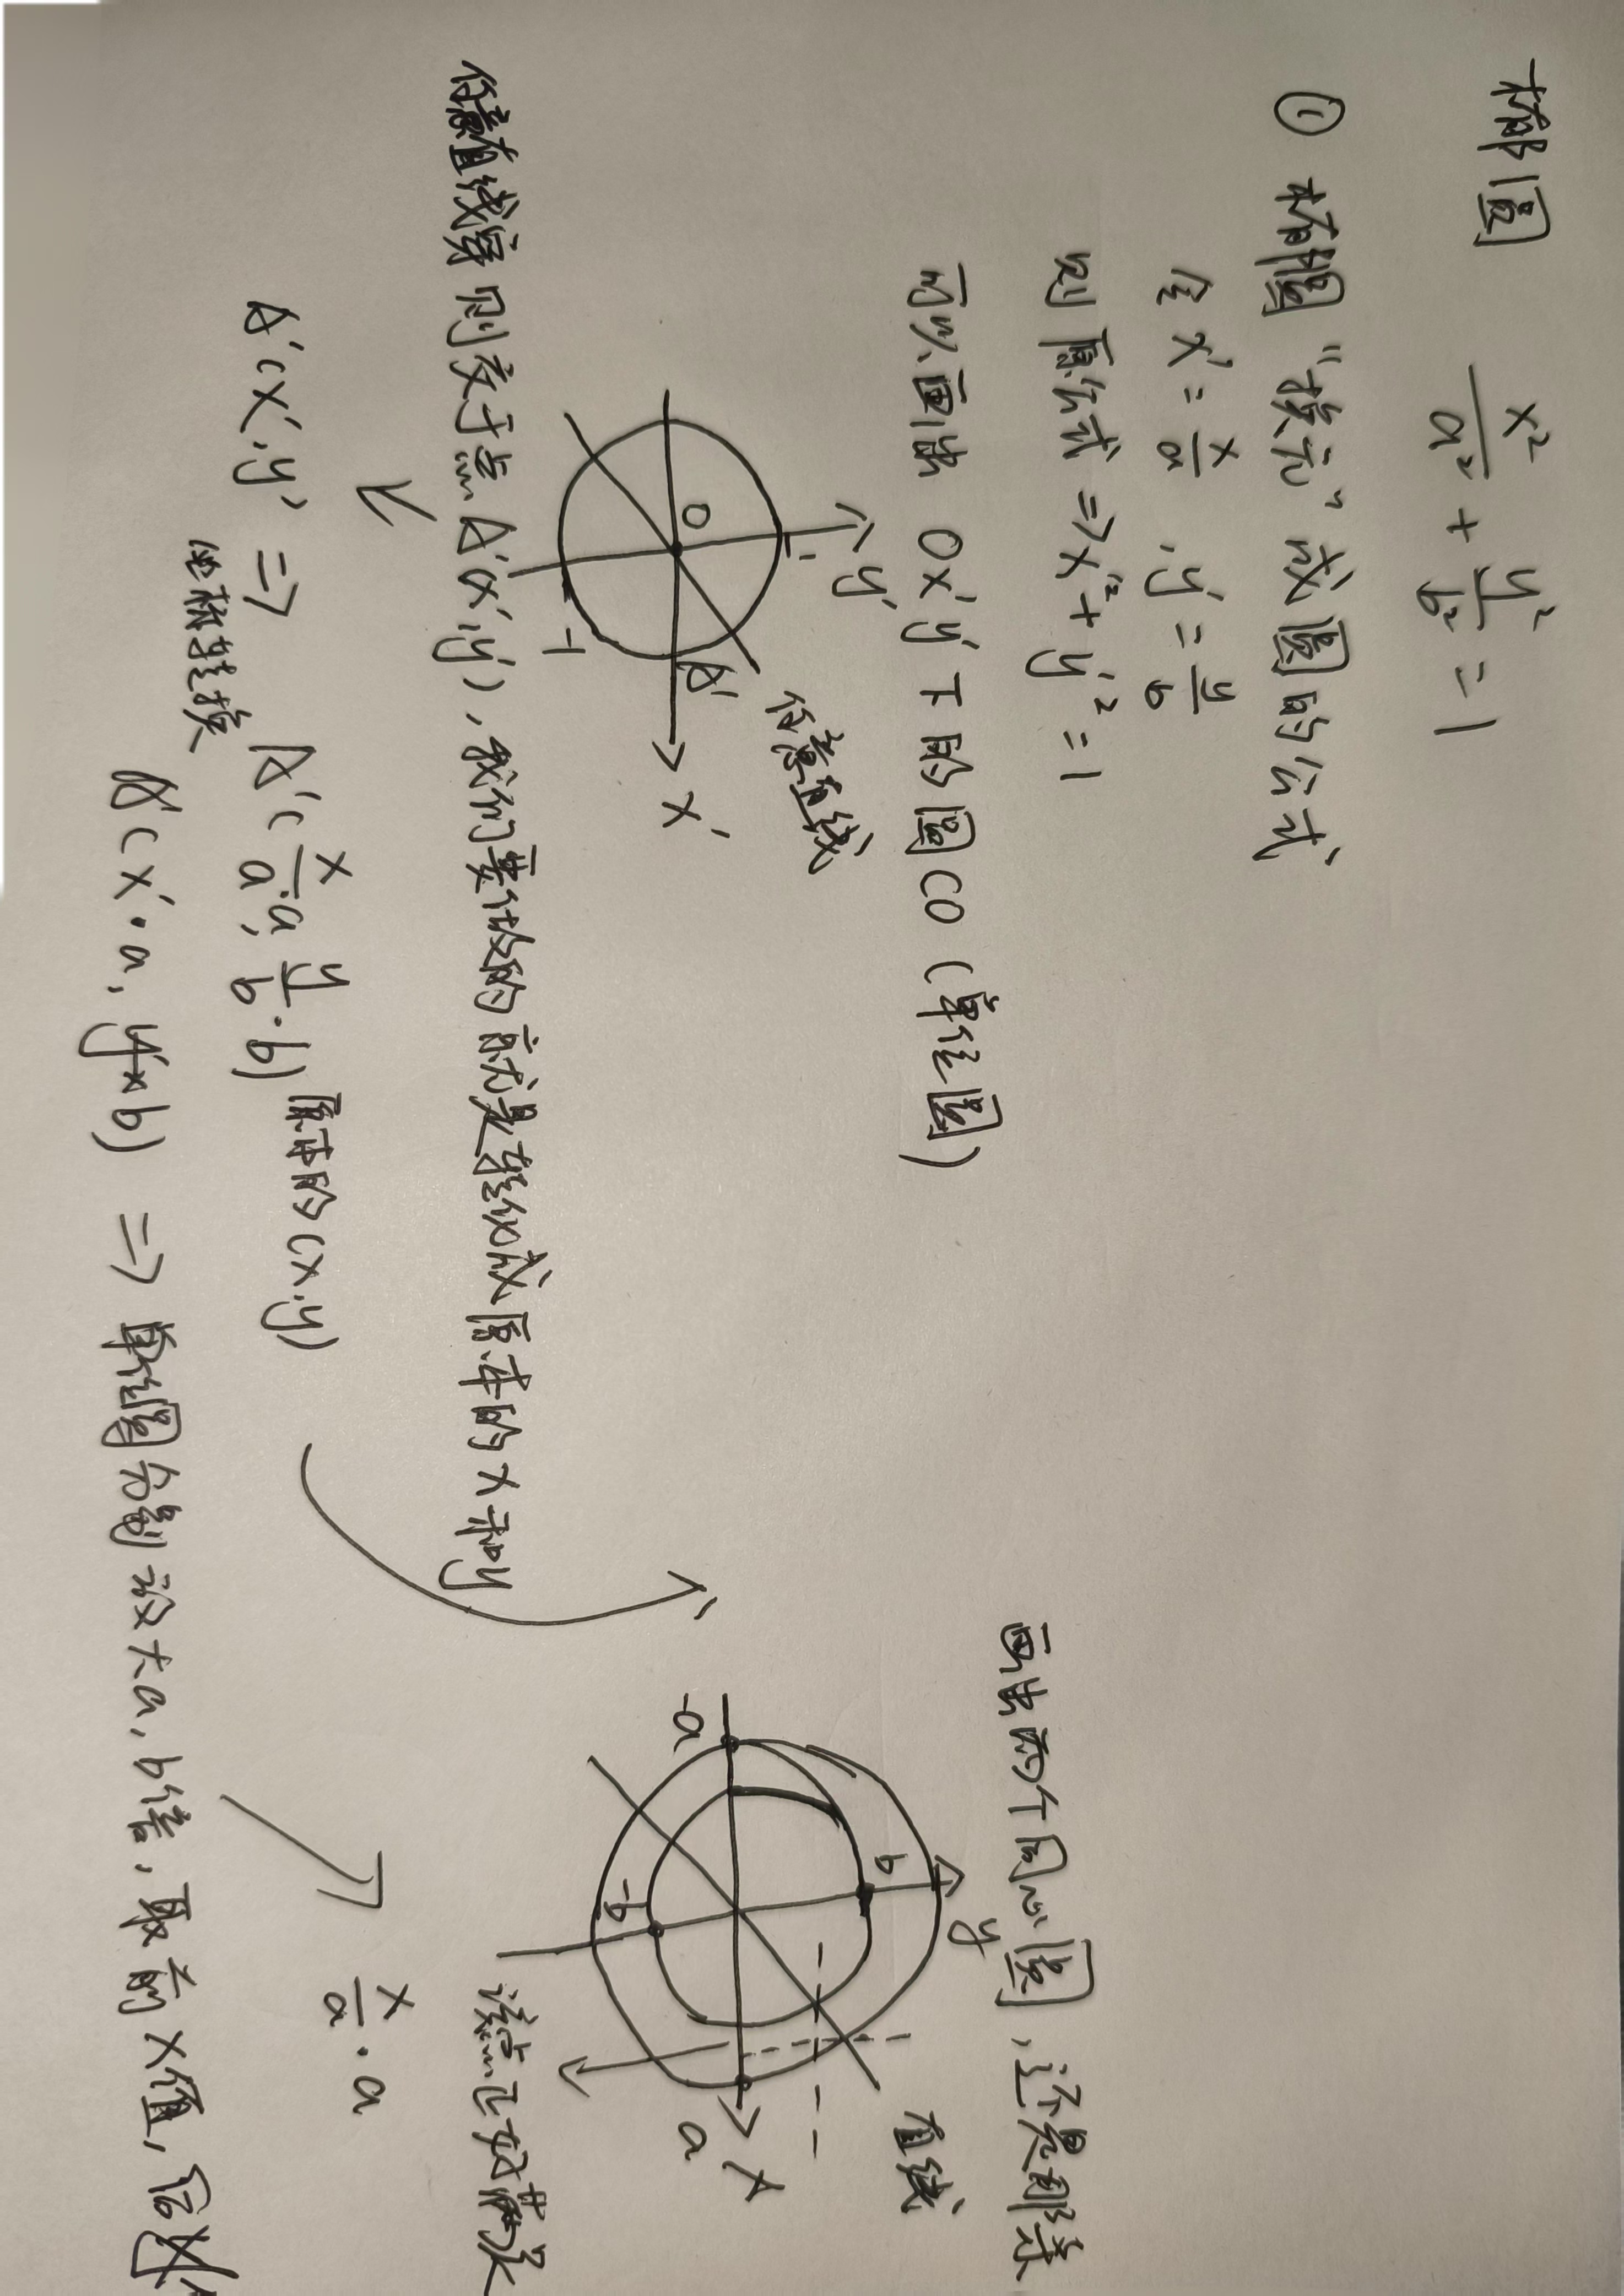 椭圆 x²/a² + y²/b² = 1
① 椭圆“换元”成圆的公式
令 x' = x/a , y' = y/b
则原公式 => x'² + y'² = 1
可以画出 Ox'y' 下的圆CO (单位圆)
y'
1
O
A'
x'
-1
任意直线
任意直线穿 则交于点 A'(x',y') , 我们要做的就是转换成原本的 x 和 y
A'(x',y') => A'(x/a·a, y/b·b) 原本的(x,y)
坐标转换
A'(x'·a, y'×b) => 单位圆分别放大a, b倍,
x/a · a
画出两个同心圆, 还是那条
直线
y
b
-a
-b
a
x
该点正好满足